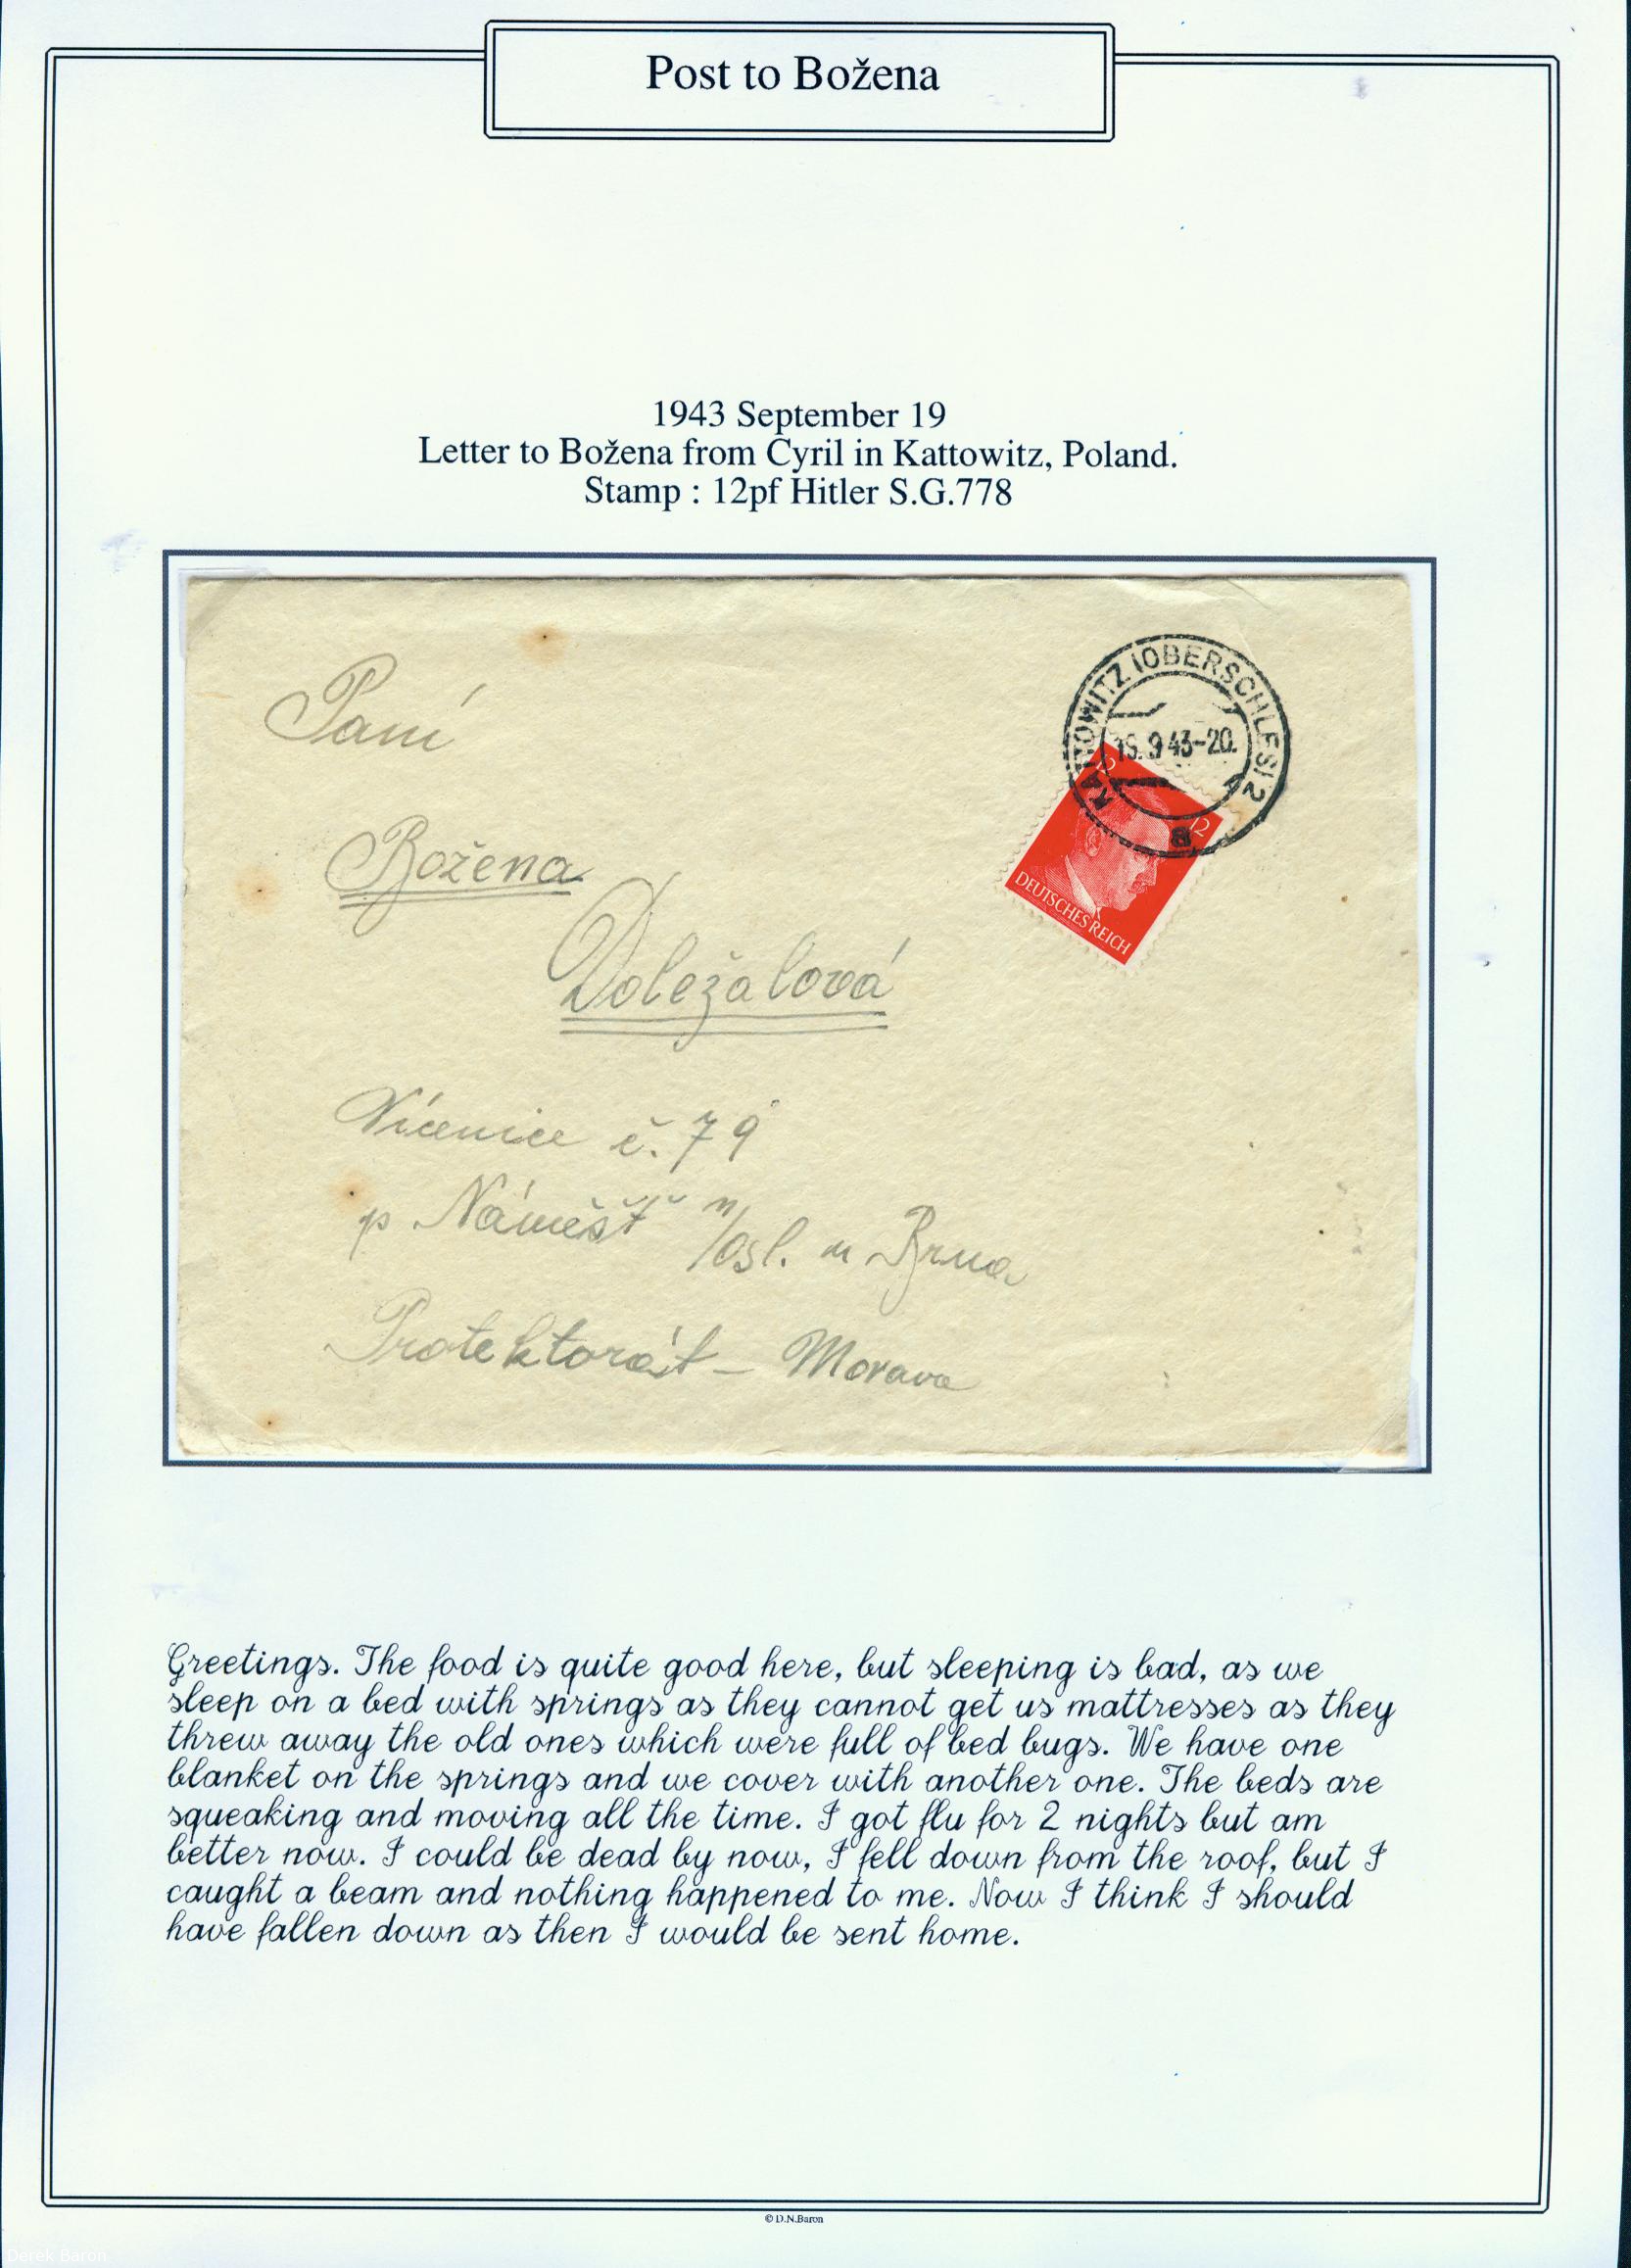 Post to Božena
1943 September 19
Letter to Božena from Cyril in Kattowitz, Poland.
Stamp : 12pf Hitler S.G.778
Paní
KATTOWITZ (OBERSCHLES) 2
19.9.43-20.
a
12
12
DEUTSCHES REICH
Božena
Doležalová
Vícenice č. 79
p Náměšť n/Osl. u Brna
Protektorát - Morava
Greetings. The food is quite good here, but sleeping is bad, as we
sleep on a bed with springs as they cannot get us mattresses as they
threw away the old ones which were full of bed bugs. We have one
blanket on the springs and we cover with another one. The beds are
squeaking and moving all the time. I got flu for 2 nights but am
better now. I could be dead by now, I fell down from the roof, but I
caught a beam and nothing happened to me. Now I think I should
have fallen down as then I would be sent home.
© D.N.Baron
Derek Baron